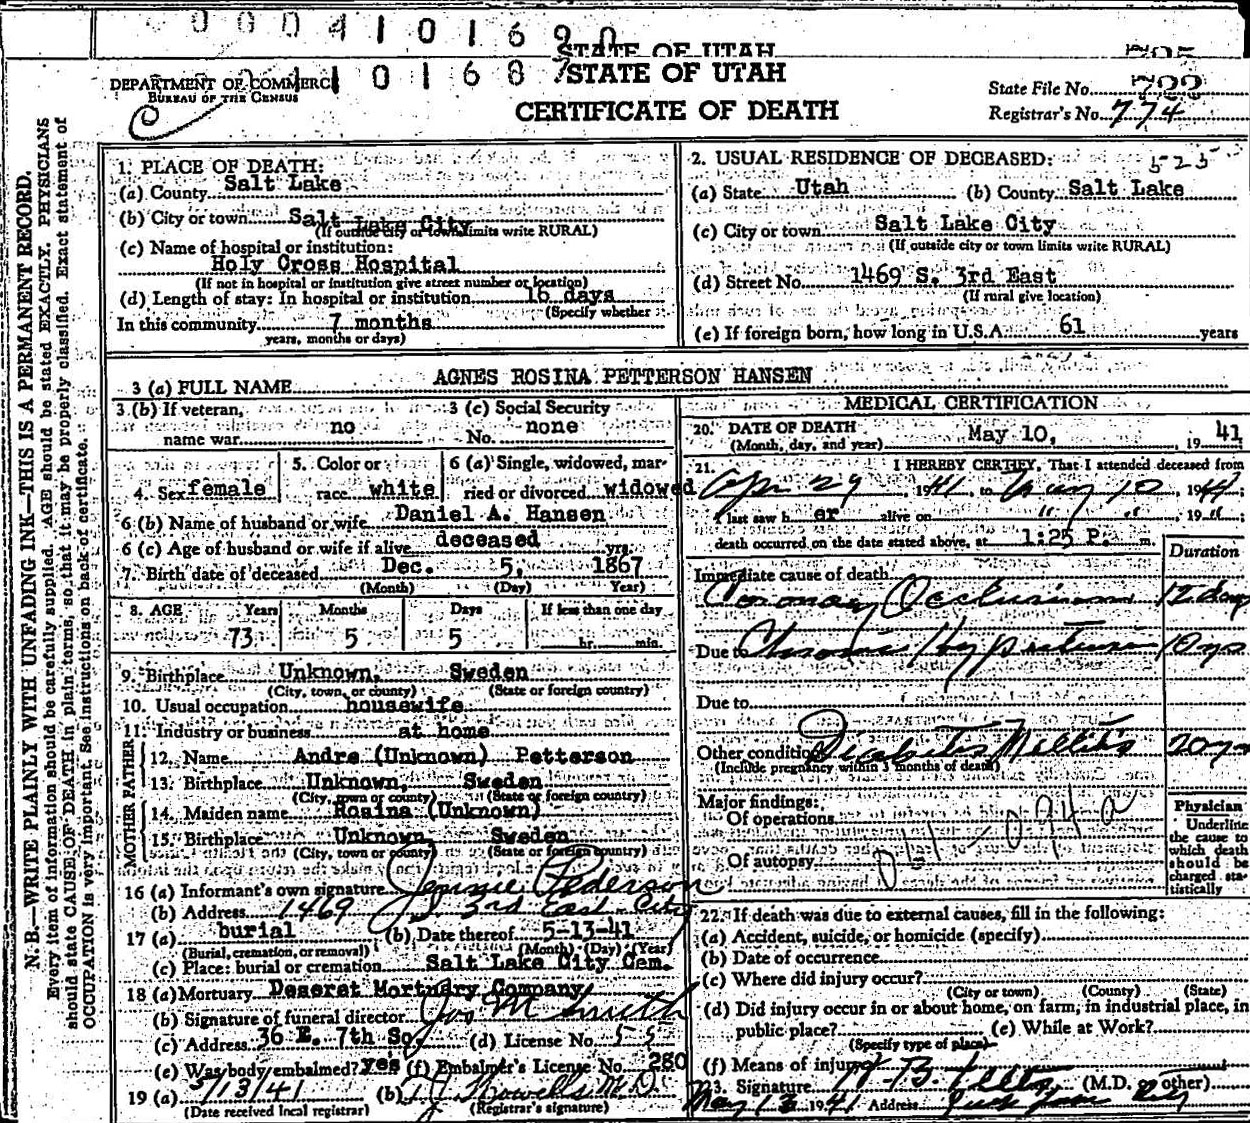 0004101690
STATE OF UTAH
DEPARTMENT OF COMMERCE
BUREAU OF THE CENSUS
STATE OF UTAH
CERTIFICATE OF DEATH
State File No.
Registrar's No. 774
N. B.—WRITE PLAINLY WITH UNFADING INK—THIS IS A PERMANENT RECORD.
Every item of information should be carefully supplied. AGE should be stated EXACTLY. PHYSICIANS
should state CAUSE OF DEATH in plain terms, so that it may be properly classified. Exact statement of
OCCUPATION is very important. See instructions on back of certificate.
1. PLACE OF DEATH:
(a) County Salt Lake
(b) City or town Salt Lake City
(If outside city or town limits write RURAL)
(c) Name of hospital or institution:
Holy Cross Hospital
(If not in hospital or institution give street number or location)
(d) Length of stay: In hospital or institution 16 days
(Specify whether
In this community 7 months
years, months or days)
2. USUAL RESIDENCE OF DECEASED: 525
(a) State Utah (b) County Salt Lake
(c) City or town Salt Lake City
(If outside city or town limits write RURAL)
(d) Street No. 1469 S. 3rd East
(If rural give location)
(e) If foreign born, how long in U.S.A. 61 years
3 (a) FULL NAME AGNES ROSINA PETTERSON HANSEN
3 (b) If veteran, name war no
3 (c) Social Security No. none
4. Sex female
5. Color or race white
6 (a) Single, widowed, married or divorced widowed
6 (b) Name of husband or wife Daniel A. Hansen
6 (c) Age of husband or wife if alive deceased yrs.
7. Birth date of deceased Dec. 5, 1867
(Month) (Day) Year)
8. AGE Years Months Days If less than one day
73 5 5 hr. min.
9. Birthplace Unknown, Sweden
(City, town, or county) (State or foreign country)
10. Usual occupation housewife
11. Industry or business at home
FATHER
12. Name Andre (Unknown) Petterson
13. Birthplace Unknown, Sweden
(City, town or county) (State or foreign country)
MOTHER
14. Maiden name Rosina (Unknown)
15. Birthplace Unknown Sweden
(City, town or county) (State or foreign country)
16 (a) Informant's own signature Jennie Pederson
(b) Address 1469 S. 3rd East City
17 (a) burial (b) Date thereof 5-13-41
(Burial, cremation, or removal) (Month) (Day) (Year)
(c) Place: burial or cremation Salt Lake City Cem.
18 (a) Mortuary Deseret Mortuary Company
(b) Signature of funeral director Jos M Smith
(c) Address 36 E. 7th So. (d) License No. 55
(e) Was body embalmed? Yes (f) Embalmer's License No. 280
19 (a) 5/13/41 (b) M.D.
(Date received local registrar) (Registrar's signature)
MEDICAL CERTIFICATION
20. DATE OF DEATH
(Month, day, and year) May 10, 19 41
21. I HEREBY CERTIFY, That I attended deceased from
Apr 29, 1941, to May 10, 1941;
I last saw h er alive on " " 19 "
death occurred on the date stated above, at 1:25 P. m.
Duration
Immediate cause of death
Coronary Occlusion 12 days
Due to Chronic Hypertension 10 yrs
Due to
Other condition Diabetes Mellitus 20 yrs
(Include pregnancy within 3 months of death)
Major findings:
Of operations
Of autopsy
Physician
Underline
the cause to
which death
should be
charged sta-
tistically
22. If death was due to external causes, fill in the following:
(a) Accident, suicide, or homicide (specify)
(b) Date of occurrence
(c) Where did injury occur?
(City or town) (County) (State)
(d) Did injury occur in or about home, on farm, in industrial place, in
public place? (e) While at Work?
(Specify type of place)
(f) Means of injury
23. Signature (M.D. or other)
May 13 1941 Address